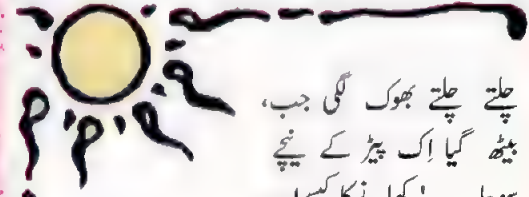 چلتے چلتے بھوک لگی جب،
بیٹھ گیا اِک پیڑ کے نیچے